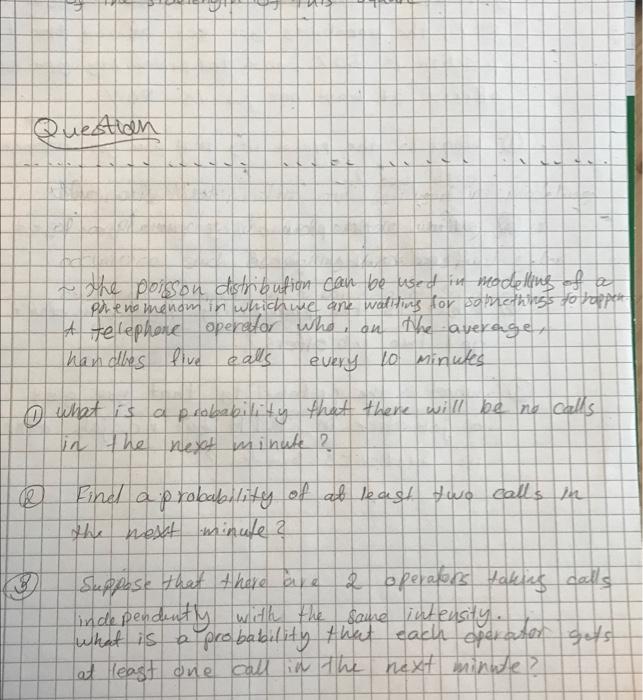 of the sidelength of this square
Question
~ The poisson distribution can be used in modelling of a
phenomenom in which we are waitting for somethings to happen
A telephone operator who, on the average,
handles five calls every 10 minutes
① what is a probability that there will be no calls
in the next minute?
② Find a probability of at least two calls in
the next minute?
③ Suppose that there are 2 operators taking calls
independently with the same intensity.
what is a probability that each operator gets
at least one call in the next minute?